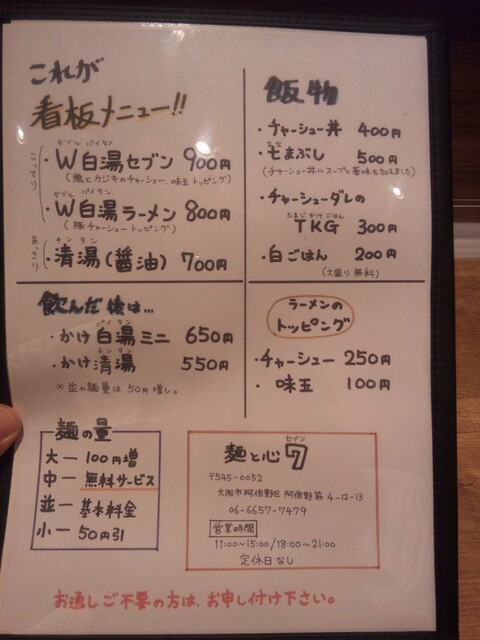 これが
看板メニュー!!
こってり
ダブル パイタン
・W白湯セブン 900円
(鶏とカジキのチャーシュー、味玉トッピング)
ダブル パイタン
・W白湯ラーメン 800円
(豚チャーシュートッピング)
あっさり
チンタン
・清湯(醤油) 700円
飯物
・チャーシュー丼 400円
・七まぶし 500円
(チャーシュー丼にスープと薬味を加えました)
・チャーシューダレの
たまごかけごはん
TKG 300円
・白ごはん 200円
(大盛り無料)
飲んだ後は…
パイタン
・かけ白湯ミニ 650円
チンタン
・かけ清湯 550円
※並の麺量は50円増し。
ラーメンの
トッピング
・チャーシュー 250円
・味玉 100円
麺の量
大ー100円増
中ー無料サービス
並ー基本料金
小ー50円引
セブン
麺と心7
〒545-0052
大阪市阿倍野区阿倍野筋4-12-13
06-6657-7479
営業時間
11:00~15:00/18:00~21:00
定休日なし
お通しご不要の方は、お申し付け下さい。